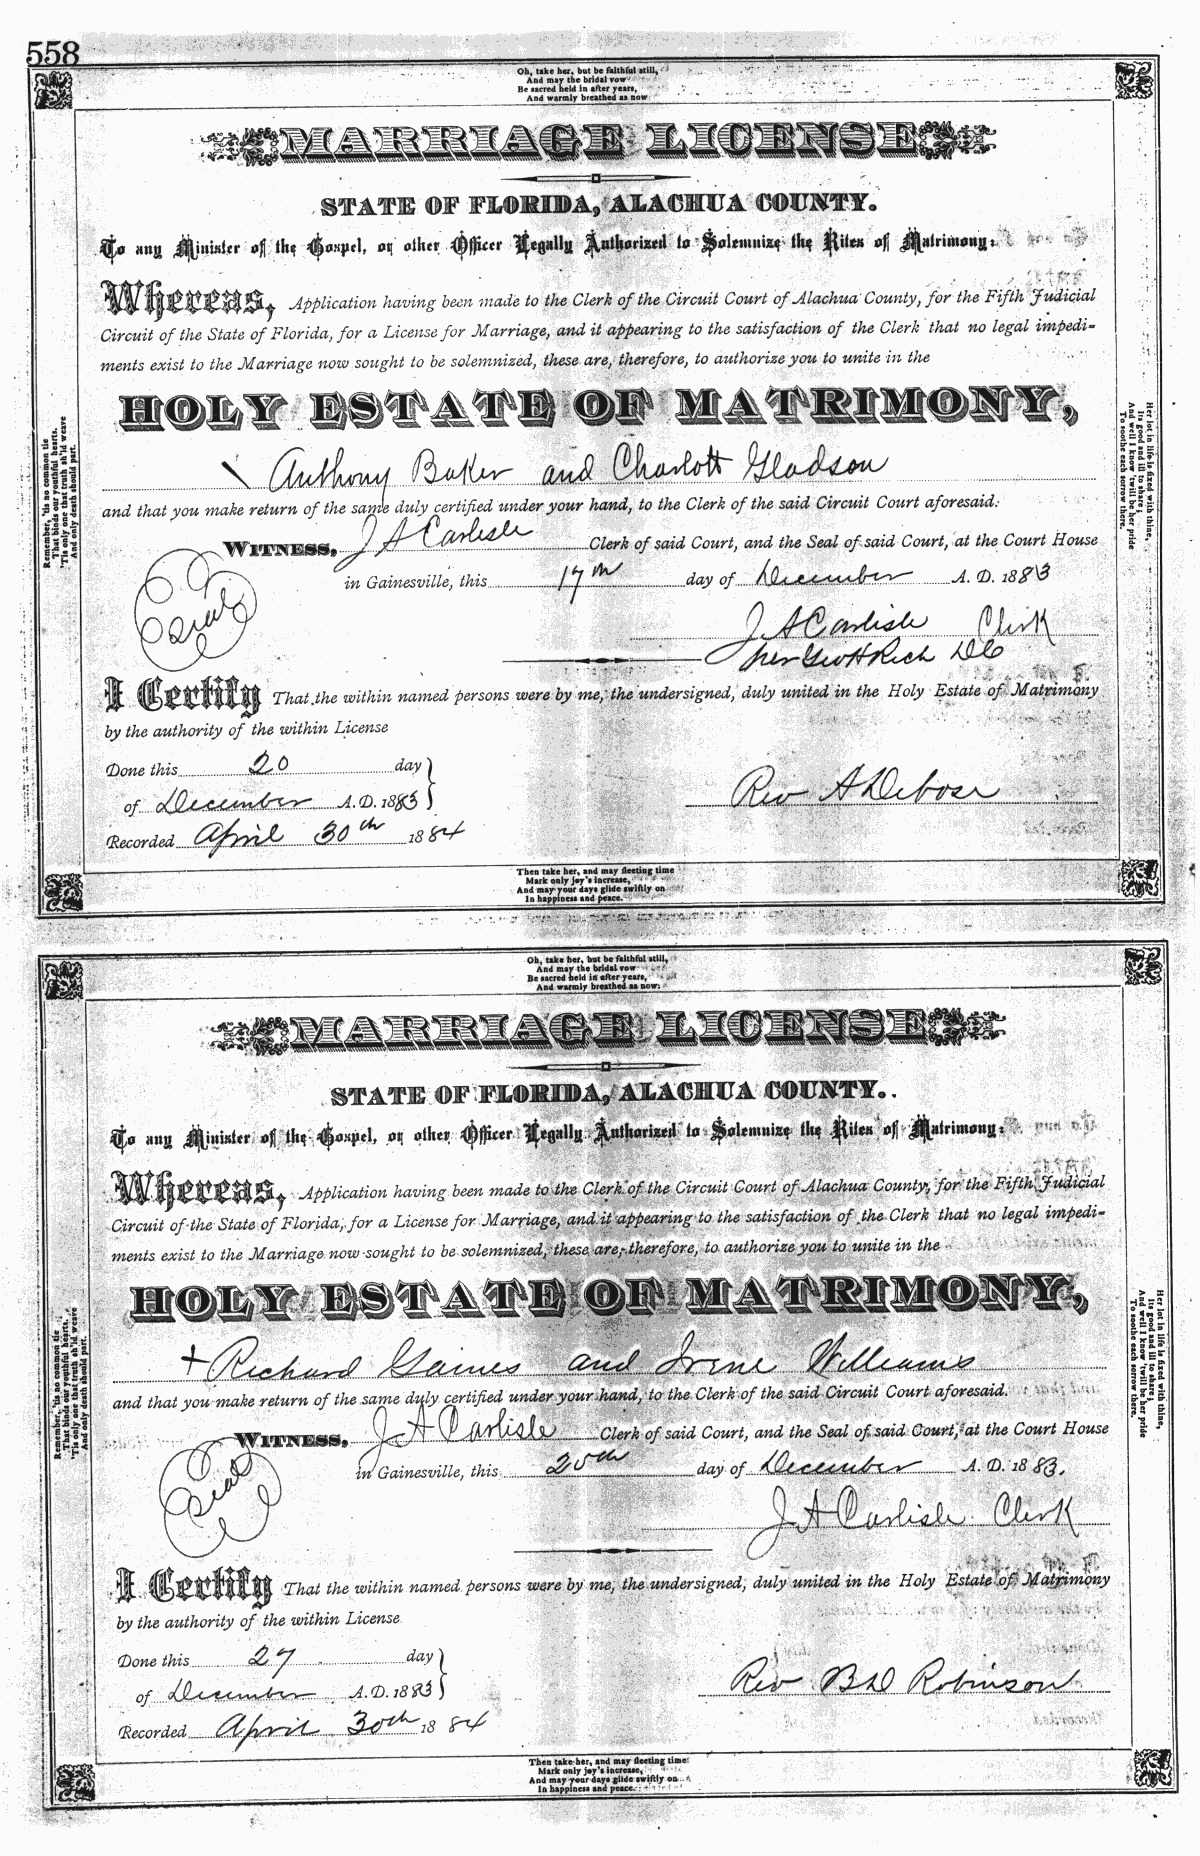 558
Oh, take her, but be faithful still,
And may the bridal vow
Be sacred held in after years,
And warmly breathed as now
MARRIAGE LICENSE
STATE OF FLORIDA, ALACHUA COUNTY.
To any Minister of the Gospel, or other Officer Legally Authorized to Solemnize the Rites of Matrimony:
Whereas, Application having been made to the Clerk of the Circuit Court of Alachua County, for the Fifth Judicial
Circuit of the State of Florida, for a License for Marriage, and it appearing to the satisfaction of the Clerk that no legal impedi-
ments exist to the Marriage now sought to be solemnized, these are, therefore, to authorize you to unite in the
HOLY ESTATE OF MATRIMONY,
Anthony Baker and Charlott Gladson
and that you make return of the same duly certified under your hand, to the Clerk of the said Circuit Court aforesaid:
WITNESS, J A Carlisle Clerk of said Court, and the Seal of said Court, at the Court House
in Gainesville, this 17th day of December A. D. 1883
Seal
J A Carlisle Clerk
per Geo H Rich DC
I Certify That the within named persons were by me, the undersigned, duly united in the Holy Estate of Matrimony
by the authority of the within License
Done this 20 day
of December A. D. 1883
Rev A Debose
Recorded April 30th 1884
Remember, 'tis no common tie
That binds our youthful hearts,
'Tis only one that truth sh'ld weave
And only death should part.
Her lot in life is fixed with thine,
Its good and ill to share;
And well I know 'twill be her pride
To soothe each sorrow there.
Then take her, and may fleeting time
Mark only joy's increase,
And may your days glide swiftly on
In happiness and peace.
Oh, take her, but be faithful still,
And may the bridal vow
Be sacred held in after years,
And warmly breathed as now.
MARRIAGE LICENSE
STATE OF FLORIDA, ALACHUA COUNTY.
To any Minister of the Gospel, or other Officer Legally Authorized to Solemnize the Rites of Matrimony:
Whereas, Application having been made to the Clerk of the Circuit Court of Alachua County, for the Fifth Judicial
Circuit of the State of Florida, for a License for Marriage, and it appearing to the satisfaction of the Clerk that no legal impedi-
ments exist to the Marriage now sought to be solemnized, these are, therefore, to authorize you to unite in the
HOLY ESTATE OF MATRIMONY,
+ Richard Gaines and Irene Williams
and that you make return of the same duly certified under your hand, to the Clerk of the said Circuit Court aforesaid.
WITNESS, J A Carlisle Clerk of said Court, and the Seal of said Court, at the Court House
in Gainesville, this 20th day of December A. D. 1883.
Seal
J A Carlisle Clerk
I Certify That the within named persons were by me, the undersigned, duly united in the Holy Estate of Matrimony
by the authority of the within License
Done this 27 day
of December A. D. 1883
Rev B D Robinson
Recorded April 30th 1884
Remember, 'tis no common tie
That binds our youthful hearts,
'Tis only one that truth sh'ld weave
And only death should part.
Her lot in life is fixed with thine,
Its good and ill to share;
And well I know 'twill be her pride
To soothe each sorrow there.
Then take her, and may fleeting time
Mark only joy's increase,
And may your days glide swiftly on
In happiness and peace.